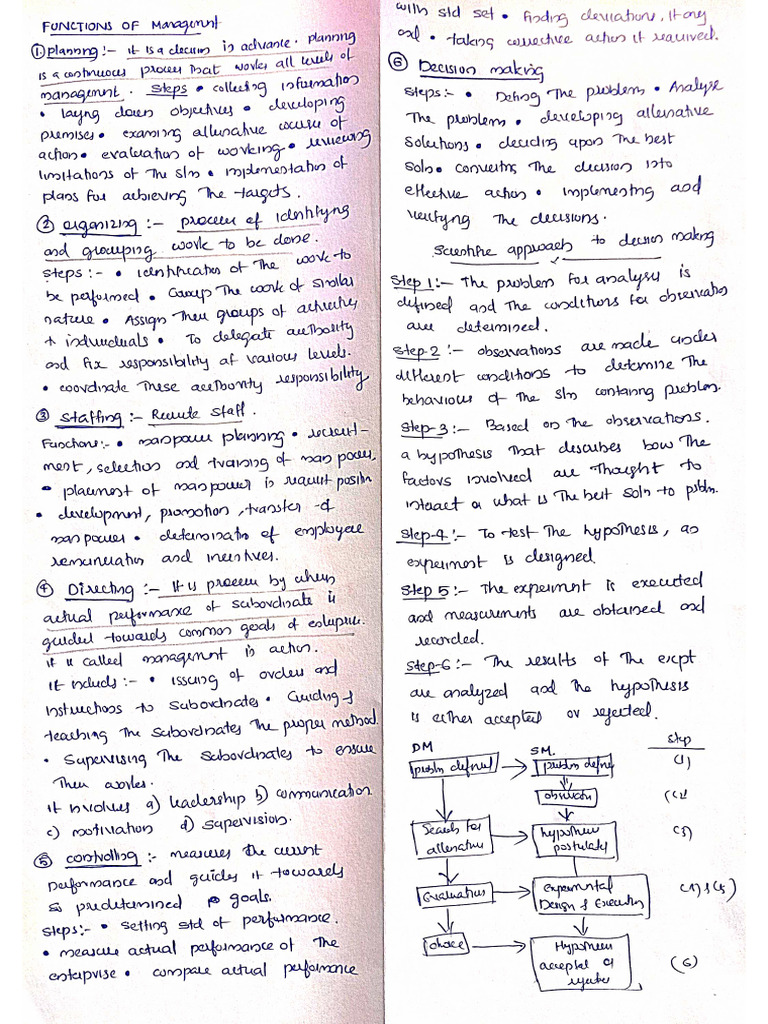 FUNCTIONS OF Management
① Planning :- it is a decision in advance. planning
is a continuous process that works all levels of
management. Steps • collecting information
• laying down objectives • developing
premises • examining alternative course of
action • evaluation of working • reviewing
limitations of the s/m • implementation of
plans for achieving the targets.
② organizing :- process of identifying
and grouping work to be done.
steps :- • identification of the work to
be performed • Group the work of similar
nature • Assign their groups of activities
+ individuals • To delegate authority
and fix responsibility at various levels.
• coordinate these authority responsibility
③ Staffing :- Recruite staff.
Functions :- • man power planning • recruit-
ment, selection and training of man power.
• placement of man power in requir't position
• development, promotion, transfer of
man power • determination of employee
remuneration and incentives.
④ Directing :- it is process by which
actual performance of subordinate is
guided towards common goals of enterprise.
it is called management in action.
it includes :- • issuing of orders and
instructions to subordinates • Guiding &
teaching the subordinates the proper method.
• Supervising the subordinates to ensure
their works.
it involves a) leadership b) communication
c) motivation d) supervision.
⑤ controlling :- measures the current
performance and guides it towards
predetermined goals.
steps :- • setting std of performance.
• measure actual performance of the
enterprise • compare actual performance
with std set • finding deviations, if any
and • taking corrective action if required.
⑥ Decision making
steps :- • Defing the problem • Analyse
the problem • developing alternative
solutions • deciding upon the best
soln • converting the decision into
effective action • implementing and
verifying the decisions.
Scientific approach to decision making
Step 1 :- The problem for analysis is
defined and the conditions for observation
are determined.
Step-2 :- observations are made under
different conditions to determine the
behaviour of the s/m containing problem.
Step-3 :- Based on the observations.
a hypothesis that describes how the
factors involved are thought to
interact or what is the best soln to pblm.
Step-4 :- To test the hypothesis, an
experiment is designed.
Step 5 :- The experiment is executed
and measurements are obtained and
recorded.
Step-6 :- The results of the expt
are analyzed and the hypothesis
is either accepted or rejected.
DM SM. Step
problm defined problm defined (1)
observation (2)
Search for
alternatives
hypotheses
postulated
(3)
Evaluations
experimental
Design & Execution
(4) & (5)
choice
Hypotheses
accepted or
rejected
(6)